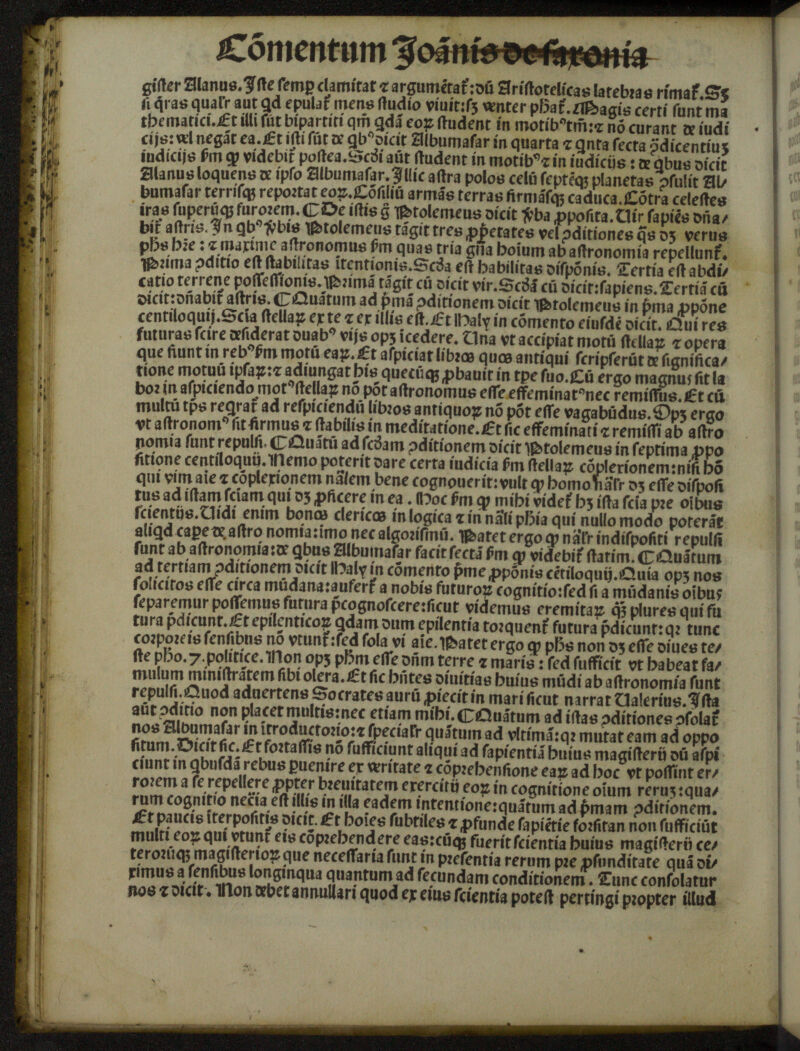 Cōmentum Joānis de Saxonia
gister Alanus. Iste semp clamitat ⁊ argumētat᷑: dū Aristotelicas latebras rimat᷑. Sꝫ
si q̄ras qualr̄ aut qd epulat᷑ mens studio viuit: sꝫ venter phat᷑. Magis certi sunt ma
thematici. Et illi sūt bipartiti qm̄ qdā eoꝝ student in motibꝰ tm̄: ⁊ nō curant de iudi
cijs: vel negāt ea. Et isti sūt de qbꝰ dicit Albumasar in quarta ⁊ qnta secta p̄dicentiuꝫ
iudicijs ẜm ꝙ videbit᷑ postea. Scdi aūt student in motibꝰ ⁊ in iudicijs: de qbus dicit
Alanus loquens de ipso Albumasar. Illic astra polos celū septēqꝫ planetas ꝯsulit Al/
bumasar terrisqꝫ reportat eoꝝ. Cōsiliū armās terras firmāsqꝫ caduca. Cōtra celestes
iras superūqꝫ furorem. ¶ De istis g̊ Ptolemeus dicit ꝟba ꝓposita. Uir sapiēs dn̄a/
bit᷑ astris. In qbꝰ ꝟbis Ptolemeus tāgit tres ꝓp̄etates vel ꝯditiones qs dꝫ verus
phs hr̄e: ⁊ maxime astronomus ẜm quas tria gn̄a hoium ab astronomia repellunt᷑.
Prima ꝯditio est stabilitas ītentionis. Scd̄a est habilitas dispōnis. Tertia est abdi/
catio terrene possessionis. Primā tāgit cū dicit vir. Scd̄ā cū dicit: sapiens. Tertiā cū
dicit: dn̄abit᷑ astris. ¶ Quātum ad p̄mā ꝯditionem dicit Ptolemeus in p̄ma ꝓpōne
centiloquij. Scia stellaꝝ ex te ⁊ ex illis est. Et Haly in cōmento eiusdē dicit. Qui res
futuras scire desiderat duabꝰ vijs opꝫ īcedere. Una vt accipiat motū stellaꝝ ⁊ opera
que fiunt in rebꝰ ẜm motū eaꝝ. Et aspiciat libros quos antiqui scripserūt de significa/
tione motuū ipsaꝝ: ⁊ adiungat his quecūqꝫ ꝓbauit in tpe suo. Cū ergo magnuſ sit la
bor in aspiciendo motꝰ stellaꝝ nō pōt astronomus esse effeminatꝰ nec remissus. Et cū
multū tps reqrat᷑ ad respiciendū libros antiquoꝝ nō pōt esse vagabūdus. Opꝫ ergo
vt astronomꝰ sit firmus ⁊ stabilis in meditatione. Et sic effeminati ⁊ remissi ab astro
nomia sunt repulsi. ¶ Quātū ad scd̄am ꝯditionem dicit Ptolemeus in septima ꝓpo
sitione centiloquij. Nemo poterit dare certa iudicia ẜm stellaꝝ cōplexionem: nisi hō
qui vim aīe ⁊ cōplexionem nālem bene cognouerit: vult ꝙ homo nālr̄ dꝫ esse disposi
tus ad istam sciam qui dꝫ ꝓficere in ea. Hoc ẜm ꝙ mihi videt᷑ hꝫ ista scia pre oībus
scientijs. Uidi enim bonos clericos in logica ⁊ in nāli phia qui nullo modo poterāt
aliqd cape de astro nomia: imo nec algorismū. Patet ergo ꝙ nālr̄ indispositi repulsi
sunt ab astronomia: de qbus Albumasar facit sectā ẜm ꝙ videbit᷑ statim. ¶ Quātum
ad tertiam ꝯditionem dicit Haly in cōmento p̄me ꝓpōnis cētiloquij. Quia opꝫ nos
solicitos esse circa mūdana: aufert᷑ a nobis futuroꝝ cognitio: sed si a mūdanis oībus
separemur possemus futura p̄cognoscere: sicut videmus eremitaꝝ qꝫ plures qui fu
tura p̄dicunt. Et epilenticoꝝ qdam dum epilentia torquent᷑ futura p̄dicunt: qꝛ tunc
corporeis sensibus nō vtunt᷑: sed sola vi aīe. Patet ergo ꝙ phs non dꝫ esse diues te/
ste pho. 7. politice. Non opꝫ phm esse dn̄m terre ⁊ maris: sed sufficit vt habeat fa/
mulum ministrātem sibi olera. Et sic hn̄tes diuitias huius mūdi ab astronomia sunt
repulsi. Quod aduertens Socrates aurū ꝓiecit in mari sicut narrat Ualerius. Ista
aūt ꝯditio non placet multis: nec etiam mihi. ¶ Quātum ad istas ꝯditiones ꝯsolat᷑
nos Albumasar in ītroductorio: ⁊ specialr̄ quātum ad vltimā: qꝛ mutat eam ad oppo
situm. Dicit sic. Et fortassis nō sufficiunt aliqui ad sapientiā huius magisterij dū aspi
ciunt in qbusdā rebus puenire ex veritate ⁊ cōprehensione eaꝝ ad hoc vt possint er/
rorem a se repellere ꝓpter breuitatem exercitij eoꝝ in cognitione oīum rerū: qua/
rum cognitio necīa est illis in illa eadem intentione: quātum ad p̄mam ꝯditionem.
Et paucis īterpositis dicit. Et hoīes subtiles ⁊ ꝓfunde sapiētie forsitan non sufficiūt
multi eoꝝ qui vtunt᷑ eis cōprehendere eas: cūqꝫ fuerit scientia huius magisterij ce/
terorūqꝫ magisterioꝝ que necessaria sunt in presentia rerum pre ꝓfunditate quā di/
ximus a sensibus longinqua quantum ad secundam conditionem. Tunc consolatur
nos ⁊ dicit. Non debet annullari quod ex eius scientia potest pertingi propter illud